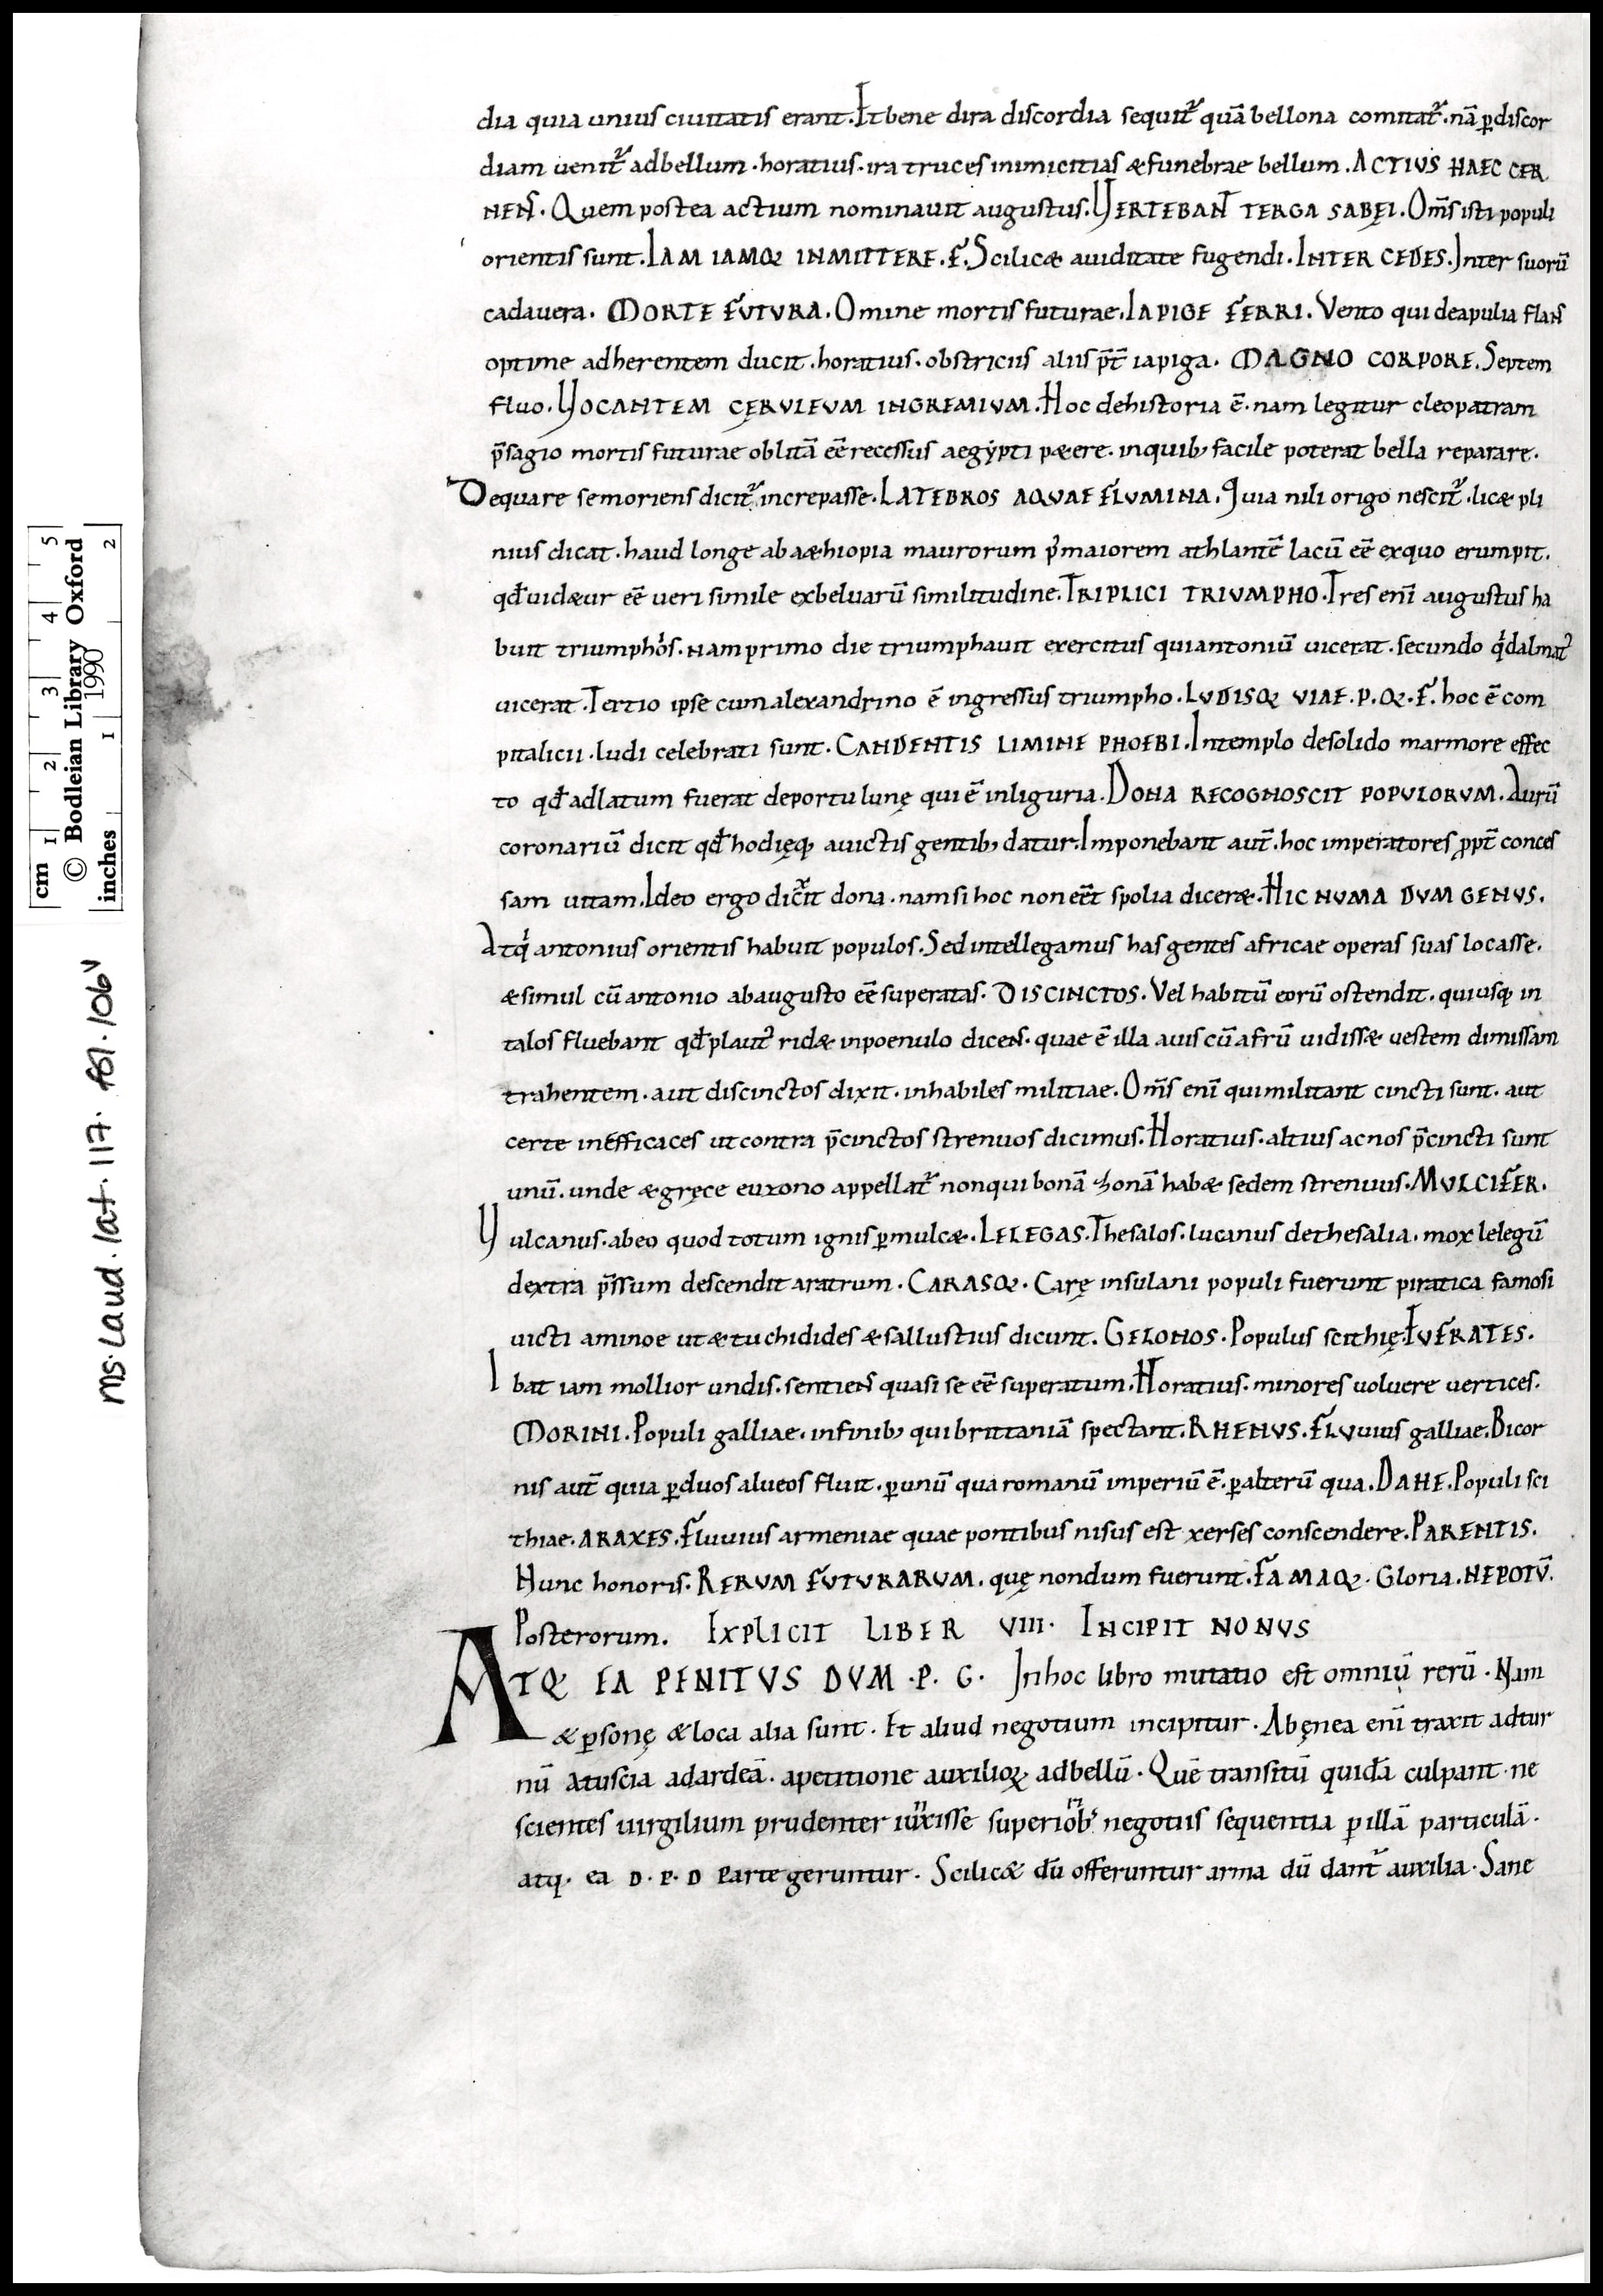 dia quia unius ciuitatis erant. Et bene dira discordia sequit᷑ quā bellona comitat᷑. nā p̲discor
diam uenit᷑ adbellum. horatius. ira truces inimicitias æ funebrae bellum. ACTIUS HAEC CER
NENS̄. Quem postea actium nominauit augustus. VERTEBANT TERGA SABĘI. Om̄s isti populi
orientis sunt. IAM IAMQ; INMITTERE. F. Scilicæ auiditate fugendi. INTER CEDES. Inter suorū
cadauera. MORTE FUTURA. Omine mortis futurae. IAPIGE FERRI. Vento qui deapulia flans
optime adherentem ducit. horatius. obstricus aliis p̄t̄ iapiga. MAGNO CORPORE. Septem
fluo. VOCANTEM CĘRULEUM INGREMIUM. Hoc dehistoria ē. nam legitur cleopatram
p̄sagio mortis futurae oblitā eē recessus aegẏpti pæere. inquib; facile poterat bella reparare.
Dequare semoriens dicit᷑ increpasse. LATEBROS AQUAE FLUMINA. Quia nili origo nescit᷑. licæ pli
nius dicat. haud longe ab aæhiopia maurorum p̄maiorem athlantē lacū eē exquo erumpit.
qđ uidæur eē ueri simile exbeluarū similitudine. TRIPLICI TRIUMPHO. Tres enī augustus ha
buit triumphos. nam primo die triumphauit exercitus qui antoniū uicerat. secundo q̇dalmat᷑
uicerat. Tertio ipse cum alexandrino ē ingressus triumpho. LUDISQ; VIAE. P. Q;. F. hoc ē com
pitalicii. ludi celebrati sunt. CANDENTIS LIMINE PHOEBI. Intemplo desolido marmore effec
to qđ adlatum fuerat deportu lunę qui ē inliguria. DONA RECOGNOSCIT POPULORUM. Aurū
coronariū dicit qđ hodięq; auictis gentib; datur. Imponebant aut̄. hoc imperatores ꝓpt̄ conces
sam uitam. Ideo ergo dicit dona. nam si hoc non eēt spolia diceræ. HIC NUMA DUM GENUS.
Atq̇ antonius orientis habuit populos. Sed intellegamus has gentes africae operas suas locasse.
æsimul cū antonio abaugusto eē superatas. DISCINCTOS. Vel habitū eorū ostendit. qui usq; in
talos fluebant qđ plaut᷑ ridæ inpoenulo dicen̄. quae ē illa auis cū afrū uidissæ uestem dimissam
trahentem. aut discinctos dixit. inhabiles militiae. Om̄s enī qui militant cincti sunt. aut
certe inefficaces ut contra p̄cinctos strenuos dicimus. Horatius. altius ac nos p̄cincti sunt
unū. unde ægręce euzono appellat᷑ non qui bonā zonā habæ sed em strenuus. MULCIFER.
Vulcanus. abeo quod totum ignis p̲mulcæ. LELEGAS. Thesalos. lucanus dethesalia. mox lelegū
dextra p̄ssum descendit aratrum. CARASQ;. Carę insulani populi fuerunt piratica famosi
uicti aminoe ut æ tuchidides æ sallustius dicunt. GELONOS. Populus scithię. EUFRATES.
Ibat iam mollior undis. sentiens quasi se eē superatum. Horatius. minores uoluere uertices.
MORINI. Populi galliae. infinib; qui brittaniā spectant. RHENUS. Fluuius galliae. Bicor
nis aut̄ quia p̲duos alueos fluit. p̲unū qua romanū imperiū ē. p̲alterū qua. DAHE. Populi sci
thiae. ARAXES. Fluuius armeniae quae pontibus nisus est xerses conscendere. PARENTIS.
Hunc honoris. RERUM FUTURARUM. quę nondum fuerunt. FAMAQ;. Gloria. NEPOTŪ.
Posterorum. EXPLICIT LIBER VIII. INCIPIT NONUS
ATQ; EA PENITUS DUM. P. G. In hoc libro mutatio est omniū rerū. Nam
æ p̲sonę æ loca alia sunt. Et aliud negotium incipitur. Abęnea enī traxit ad tur
nū atuscia adardeā. apetitione auxilioꝝ adbellū. Quē transitū quidā culpant. ne
scientes uirgilium prudenter iunxisse superiorib; negotiis sequentia p̲ illā particulā.
atq;. ea D. P. D parte geruntur. Scilicæ dū offeruntur arma dū dant᷑ auxilia. Sane
cm 1 2 3 4 5
© Bodleian Library Oxford
1990
inches 1 2
MS. Laud. lat. 117. fol. 106v